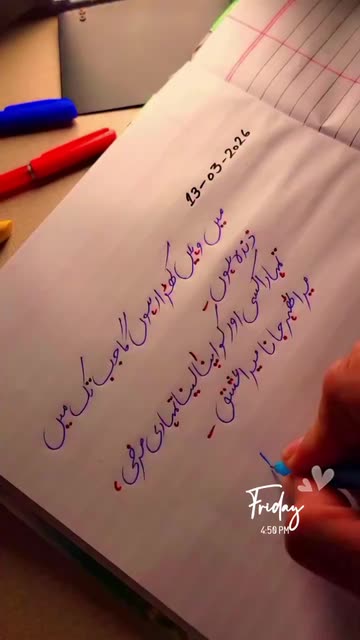 13-03-2026
میں وہیں کھڑا رہوں گا جب تک میں
زندہ ہوں۔
تمہارا کسی اور کو اپنا لینا تمہاری مرضی،
میرا ٹھہر جانا میرا عشق۔
Friday
4:50 PM